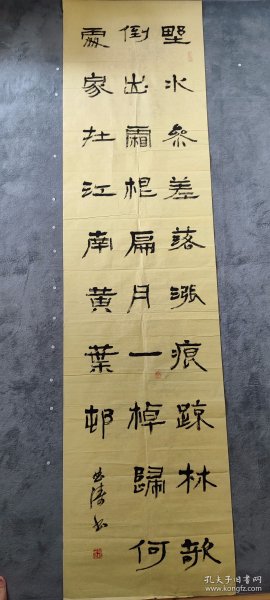 野水叅差落漲痕踈林欹
倒出霜根扁舟一棹歸何
處家在江南黄葉邨
孔夫子旧书网